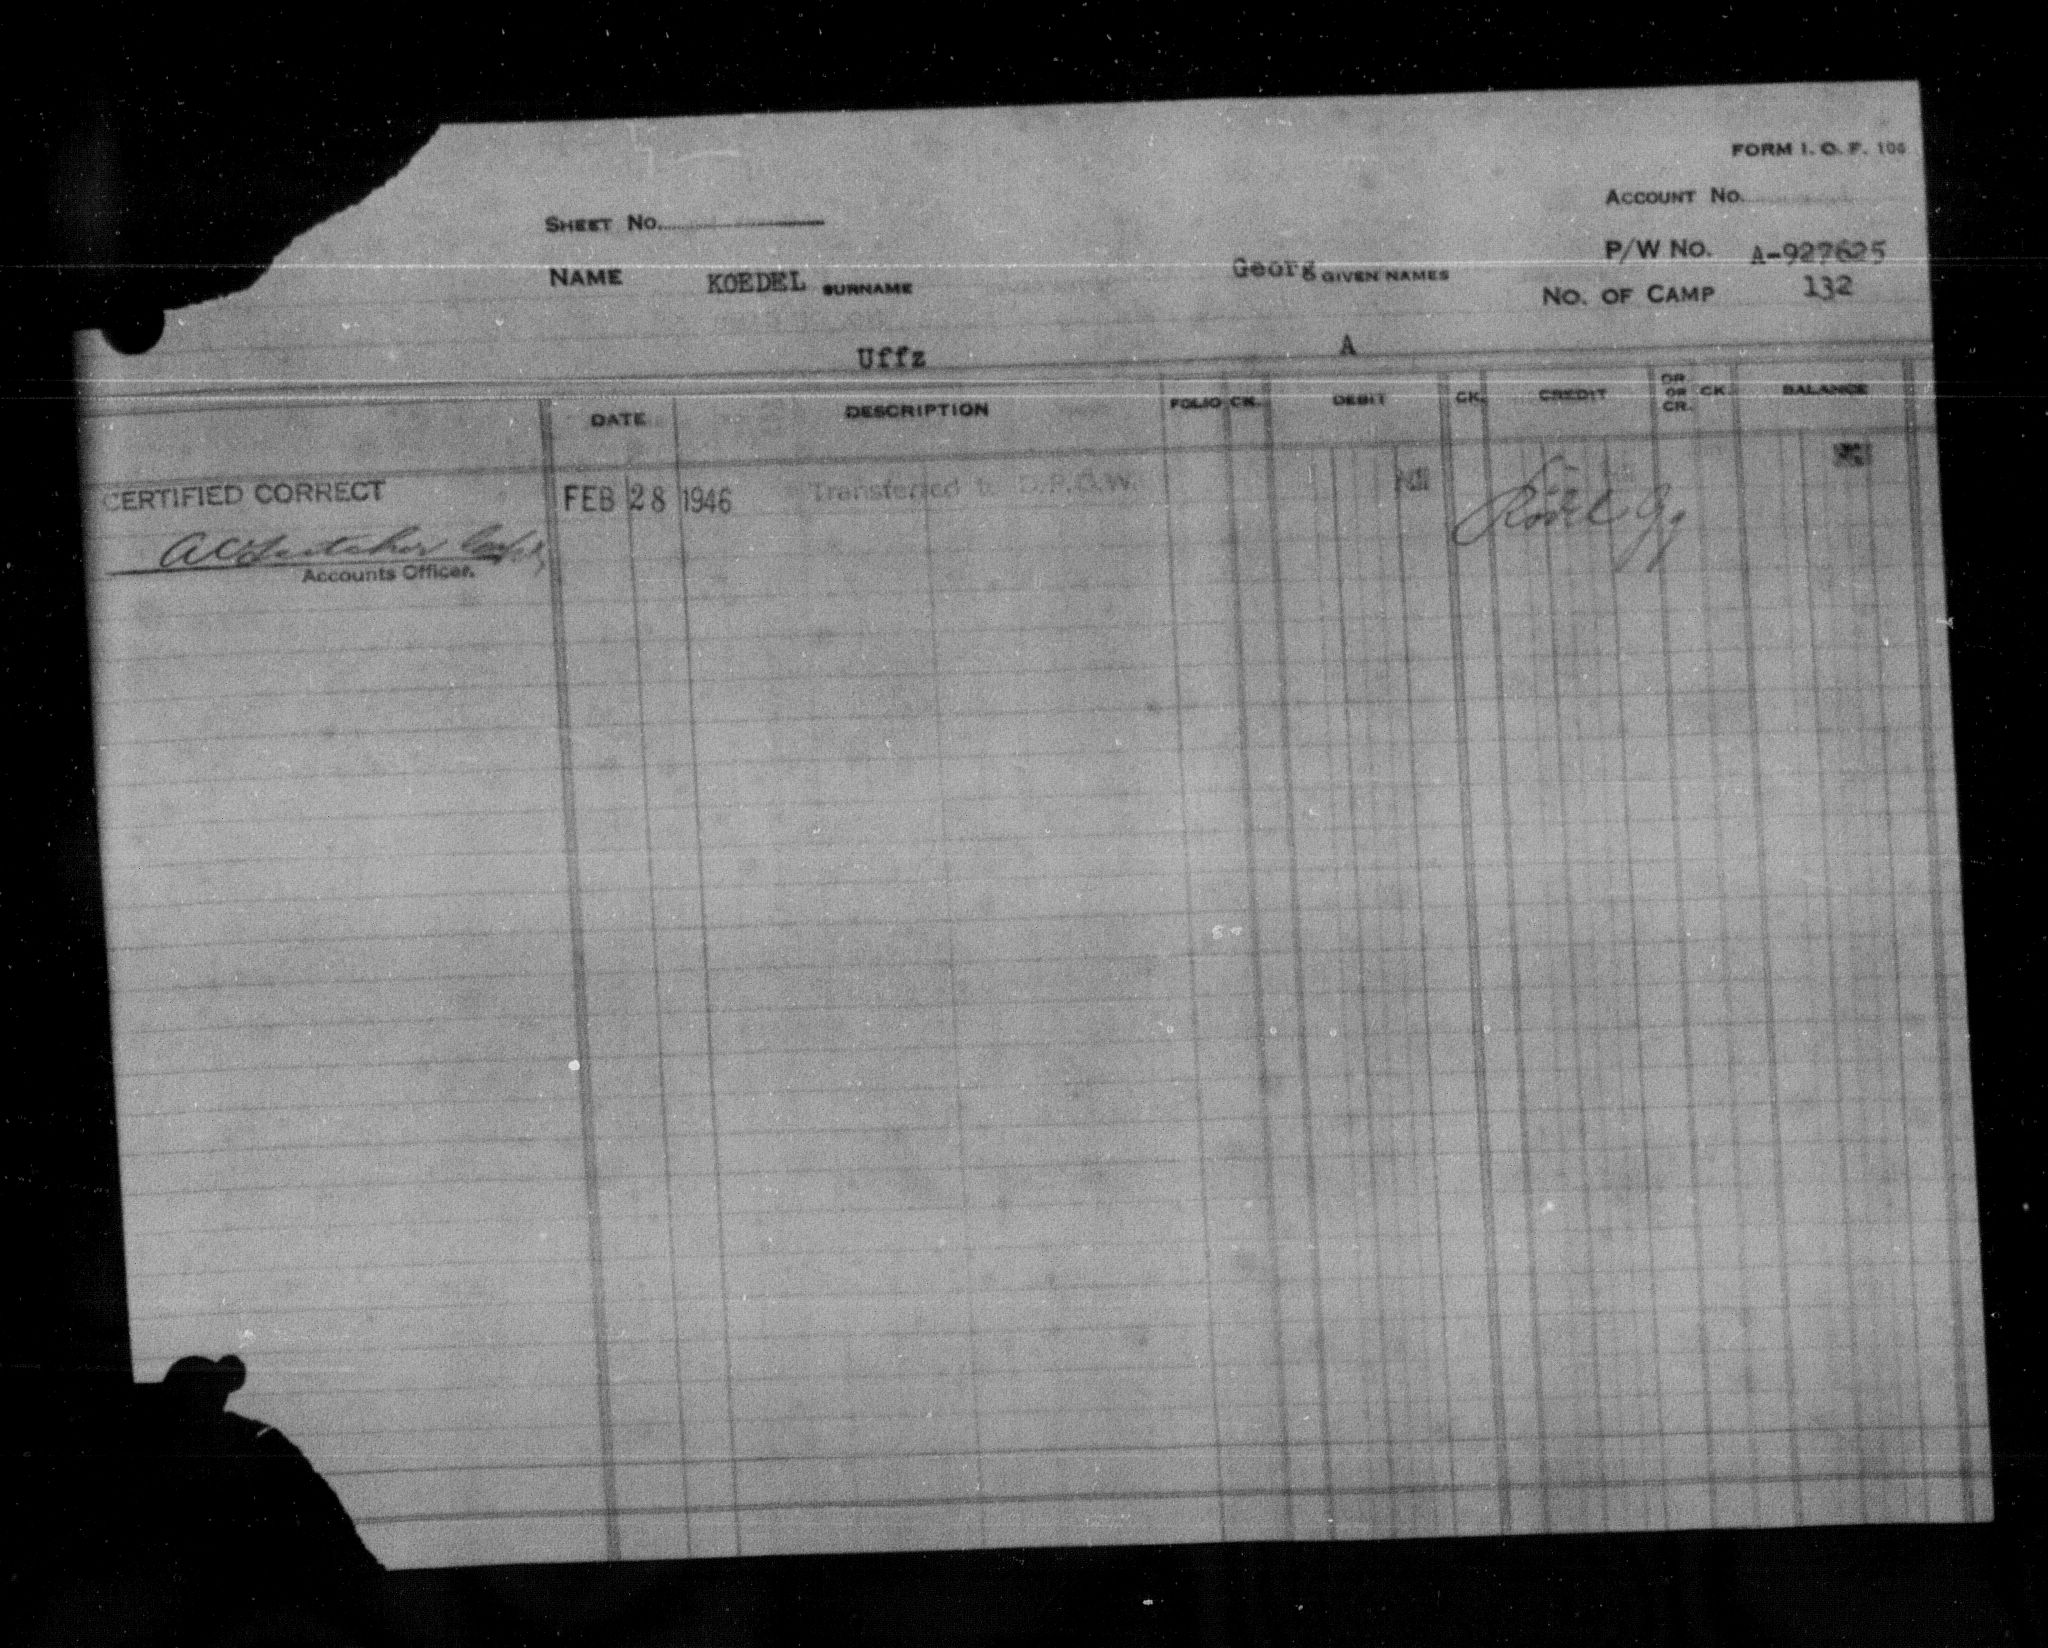 FORM I. O. F. 108
ACCOUNT NO.
SHEET NO.
P/W NO. A-927625
NAME KOEDEL SURNAME Georg GIVEN NAMES
NO. OF CAMP 132
Uffz A
DATE DESCRIPTION FOLIO CK. DEBIT CK. CREDIT DR. OR CR. CK. BALANCE
CERTIFIED CORRECT FEB 28 1946 Transferred to D.P.O.W. Nil
Accounts Officer.